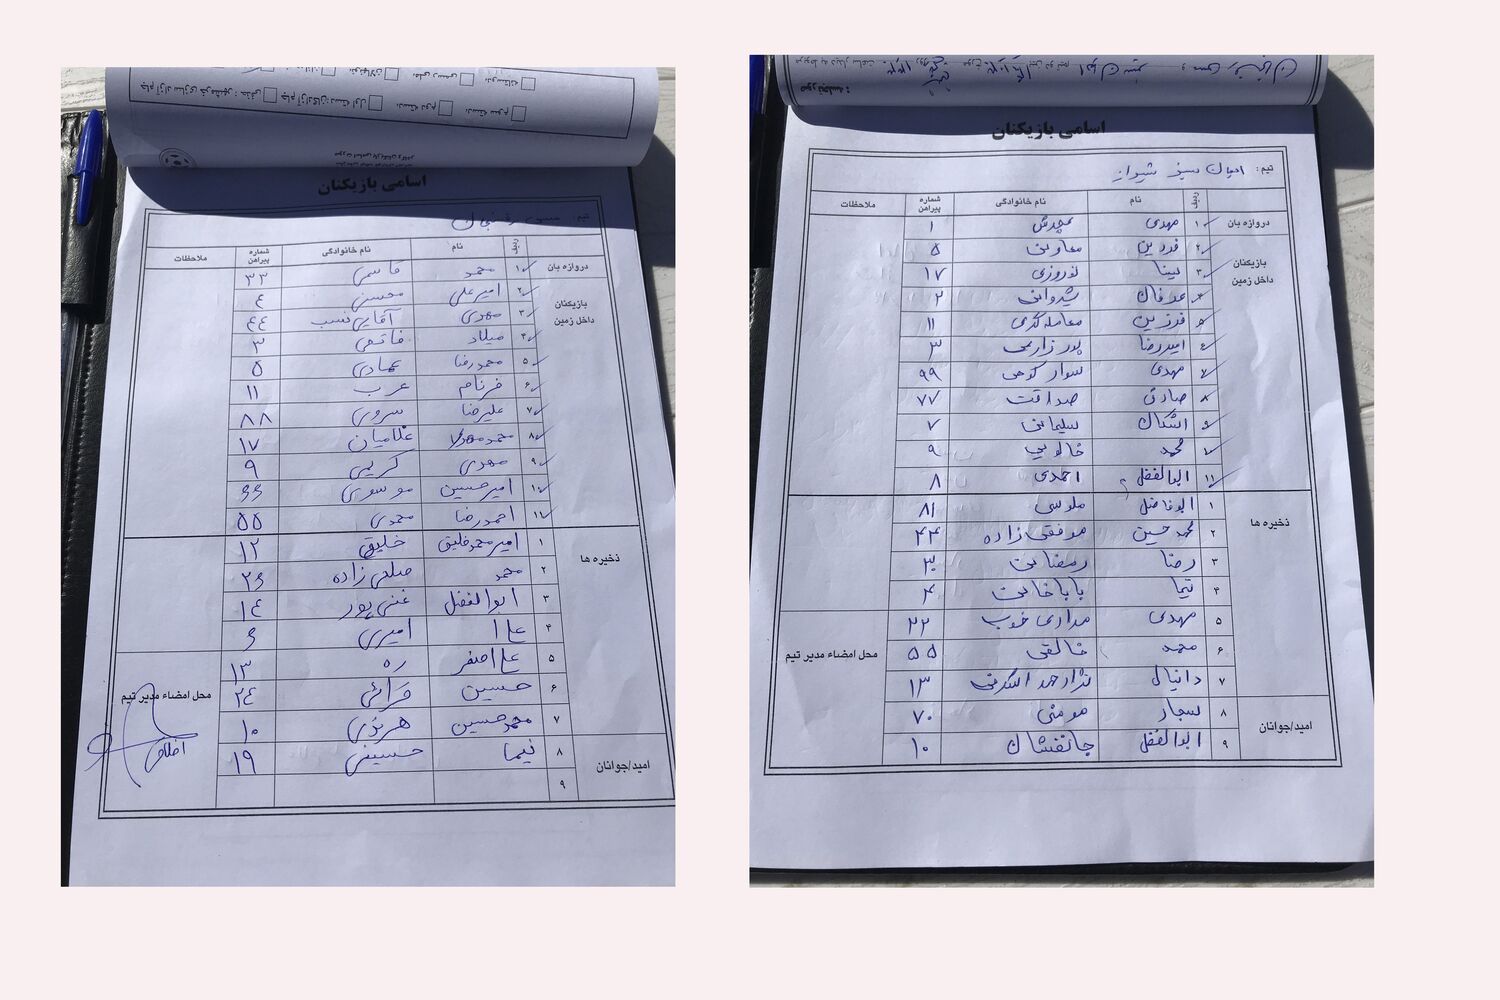 جام آزادسازی خرمشهر منفی: جام آزادگان دسته اول دسته دوم دسته سوم
اسامی بازیکنان
تیم: مس رفسنجان
ردیف نام نام خانوادگی شماره پیراهن ملاحظات
دروازه بان ۱ محمد قاسمی ۳۳
بازیکنان داخل زمین ۲ امیرعلی محسنی ۴
۳ مهدی آقایی نسب ۴۴
۴ میلاد فاتحی ۳
۵ محمدرضا عمادی ۵
۶ فرنام عرب ۱۱
۷ علیرضا سروی ۸۸
۸ محمدمهدی غلامیان ۱۷
۹ مهدی کریمی ۹
۱۰ امیرحسین موسوی ۶۶
۱۱ احمدرضا محمدی ۵۵
ذخیره ها ۱ امیرمحمد خلیقی ۱۲
۲ محمد زاده ۲۶
۳ ابوالفضل غنی پور ۱۴
۴ امیری ۶
۵ علی اصغر ره ۱۳
۶ حسین قرائی ۲۴
۷ محمدحسین هرندی ۱۰
امید/جوانان ۸ نیما حسینی ۱۹
۹
محل امضاء مدیر تیم
اسامی بازیکنان
تیم: شیراز
ردیف نام نام خانوادگی شماره پیراهن ملاحظات
دروازه بان ۱ مهدی ۱
بازیکنان داخل زمین ۲ فردین معاونی ۵
۳ سینا نوروزی ۱۷
۴ عرفان شیروانی ۲
۵ فرزین معامله گری ۱۱
۶ امیررضا پور زارعی ۳
۷ مهدی سوار کوهی ۹۹
۸ صادق صداقت ۷۷
۹ اشکان سلیمانی ۷
۱۰ محمد خالویی ۹
۱۱ ابوالفضل احمدی ۸
ذخیره ها ۱ ابوفاضل ملوسی ۸۱
۲ محمدحسین موفقی زاده ۴۴
۳ رضا رمضانی ۳۰
۴ نیما باباخانی ۴
۵ مهدی مرادی خوب ۲۲
۶ محمد خالقی ۵۵
۷ دانیال ۱۳
امید/جوانان ۸ سجاد مومنی ۷۰
۹ ابوالفضل جانفشان ۱۰
محل امضاء مدیر تیم